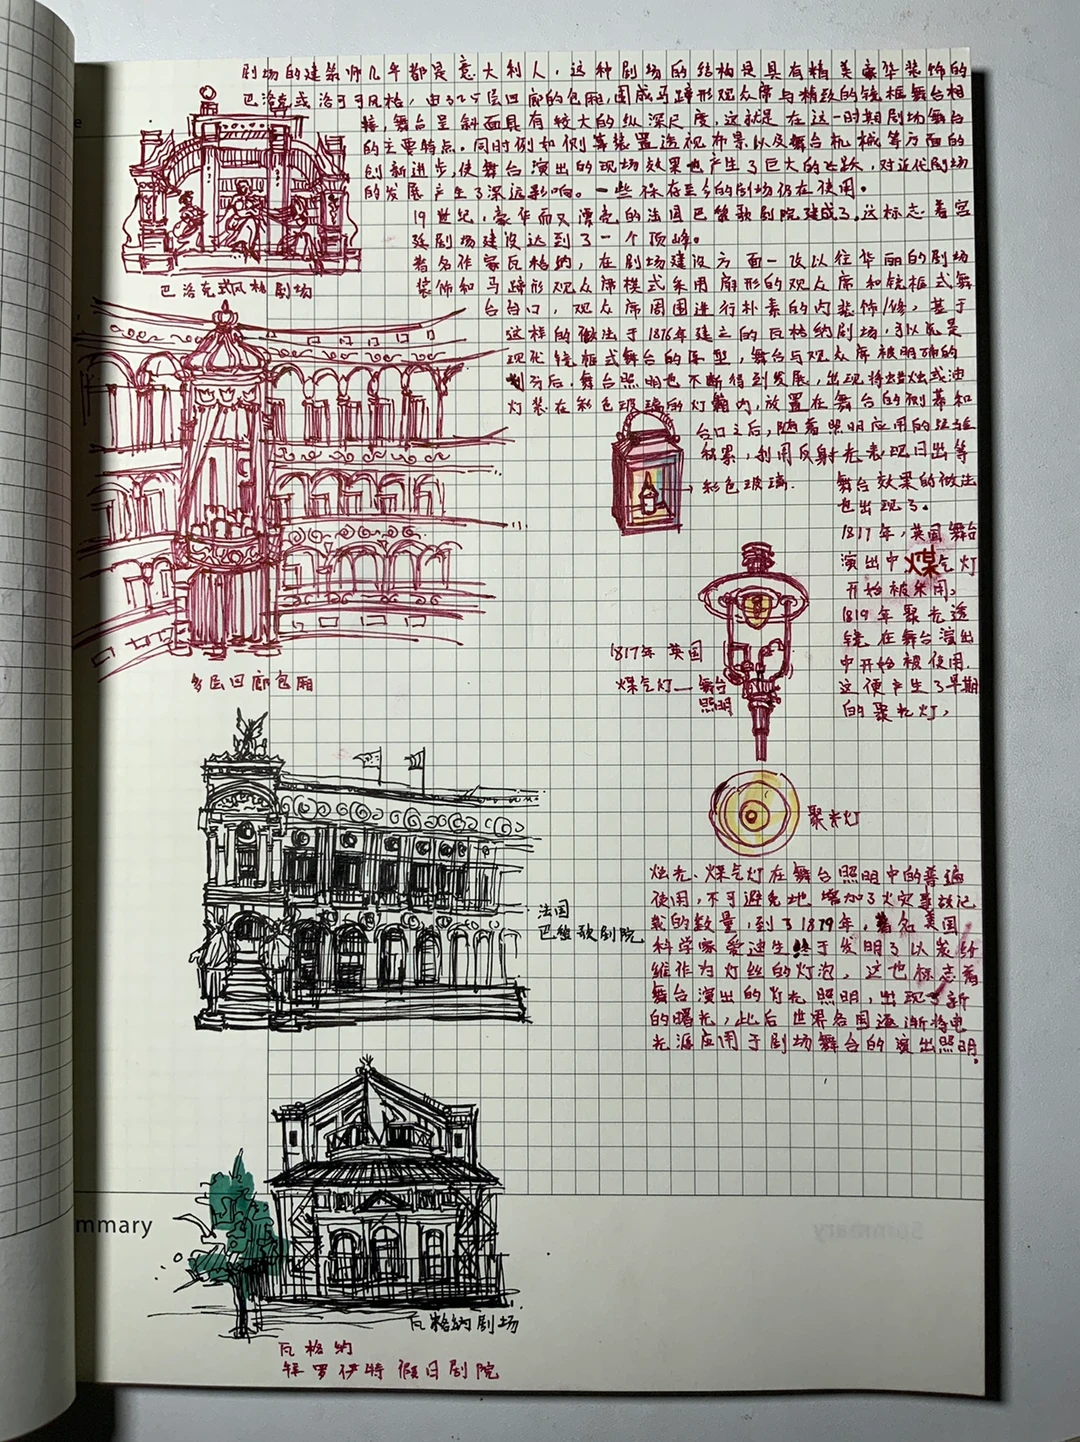 剧场的建筑师几乎都是意大利人，这种剧场的结构是具有精美豪华装饰的
巴洛克或洛可可风格，由3~5层回廊的包厢，围成马蹄形观众席与精致的镜框舞台相
接，舞台呈斜面具有较大的纵深尺度，这就是在这一时期剧场舞台
的主要特点。同时例如侧幕装置透视布景以及舞台机械等方面的
创新进步，使舞台演出的现场效果也产生了巨大的飞跃，对近代剧场
的发展产生了深远影响。一些保存至今的剧场仍在使用。
19世纪，豪华而又漂亮的法国巴黎歌剧院建成了，这标志着宫
廷剧场建设达到了一个顶峰。
著名作家瓦格纳，在剧场建设方面一改以往华丽的剧场
装饰和马蹄形观众席模式采用扇形的观众席和镜框式舞
台台口，观众席周围进行朴素的内装饰/修，基于
这样的做法于1876年建立的瓦格纳剧场，可以说是
现代镜框式舞台的原型，舞台与观众席被明确的
划分后，舞台照明也不断得到发展，出现将蜡烛或油
灯装在彩色玻璃的灯箱内，放置在舞台的侧幕和
台口之后，随着照明应用的
结果，利用反射光表现日出等
舞台效果的做法
也出现了。
巴洛克式风格剧场
彩色玻璃.
1817年，英国舞台
演出中煤气灯
开始被采用，
1819年聚光透
镜在舞台演出
中开始被使用.
这便产生了早期
的聚光灯，
多层回廊包厢
1817年英国
煤气灯—舞台
照明
聚光灯
法国
巴黎歌剧院
烛光、煤气灯在舞台照明中的普遍
使用，不可避免地增加了火灾事故记
载的数量，到了1879年，著名美国
科学家爱迪生终于发明了以炭纤
维作为灯丝的灯泡，这也标志着
舞台演出的灯光照明，出现了新
的曙光，此后世界各国逐渐将电
光源应用于剧场舞台的演出照明。
mmary
瓦格纳剧场
瓦格纳
拜罗伊特假日剧院